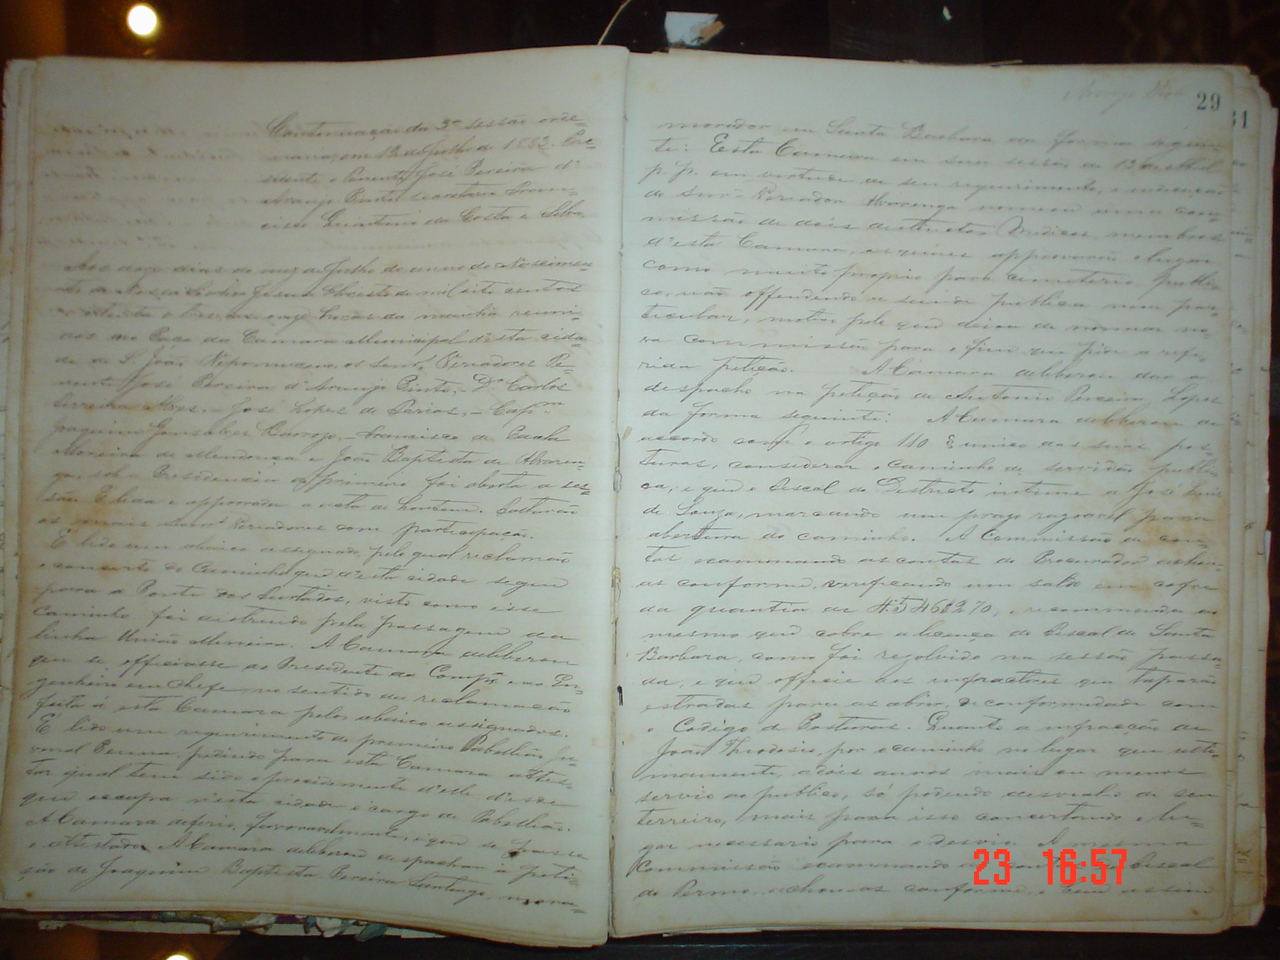 Continuação da 3ª sessão ordi-
naria, em 12 de Julho de 1883. Pre-
sidente o Tenente José Pereira d'
Araujo Pinto, secretario Fran-
cisco Quintino da Costa e Silva
Aos doze dias do mez de Julho do anno do Nascimen-
to de Nosso Senhor Jesus Christo de mil oito centos
e oitenta e tres, as onze horas da manhã reuni-
dos no Paço da Camara Municipal d'esta cida-
de de S. João Nepomuceno os Senrs Vereadores Te-
nente José Pereira d'Araujo Pinto, Dr Carlos
Ferreira Alves, José Lopes de Farias, Capm
Joaquim Gonsalves, Francisco de Paula
Moreira de Mendonça e João Baptista de Alvaren-
ga, sob a Presidencia do primeiro foi aberta a ses-
são. É lida e approvada a acta de hontem. Faltarão
os mais Senrs Vereadores com participação.
É lido um abaixo assignado, pelo qual reclamão
o concerto do Caminho que d'esta cidade segue
para a Ponte dos Furtados, visto como esse
caminho foi destruido pela passagem da
linha União Mineira. A Camara deliberou
que se officiasse ao Presidente da Compa e ao En-
genheiro em Chefe, no sentido da reclamação
feita a esta Camara pelos abaixo assignados.
É lido um requerimento do primeiro Tabellião Ju-
venal Penna, pedindo para esta Camara attes-
tar qual tem sido o procedimento d'elle desde
que occupa n'esta cidade o cargo de Tabellião.
A Camara deferio favoravelmente, e que se passe
o attestado. A Camara deliberou despachar a peti-
ção de Joaquim Baptista Pereira Santiago, mora-
29
31
morador em Santa Barbara da forma seguin-
te: Esta Camara em sua sessão de 12 de Abril
p. p. em virtude de seu requerimento, e indicação
do Senr Vereador Alvarenga nomeou uma com-
missão de dois distinctos Medicos, membros
d'esta Camara, os quaes approvarão o lugar
como muito proprio para cemiterio publi-
co, não offendendo a saude publica nem par-
ticular, motivo pelo qual deixa de nomear no-
va commissão para o fim que pede a refe-
rida petição. A Camara deliberou dar o
despacho na petição de Antonio Pereira Lopes
da forma seguinte: A Camara deliberou de
accordo com o artigo 110 § unico das suas pos-
turas, considerar o caminho de servidão publi-
ca, e que o Fiscal do Districto intime a José Luis
de Souza, marcando um prazo rasoavel para
abertura do caminho. A Commissão de con-
tas examinando as contas do Procurador achou-
as conforme, verificando um saldo em cofre
da quantia de 468270, e recommenda ao
mesmo que cobre a licença do Fiscal de Santa
Barbara, como foi resolvido na sessão passa-
da, e que officie aos infractores que taparão
estradas para as abrir, de conformidade com
o Codigo de Posturas. Quanto a infracção de
João Theodosio, por o caminho no lugar que ulti-
mamente, a dois annos mais ou menos
servio ao publico, só podendo desvial-o de seu
terreiro, mais para isso concertando o lu-
gar necessario para o desvio. A mesma
Commissão examinando as contas do Fiscal
do Termo, achou-as conforme, e bem assim
23 16:57